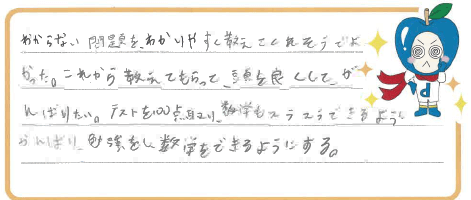 わからない問題を、わかりやすく教えてくれそうでよ
かった。これから教えてもらって、頭を良くして、が
んばりたい。テストを100点目ざし、数学もスラスラできるように
がんばり、勉強をし数学をできるようにする。
d